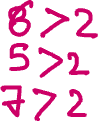 8 > 2
5 > 2
7 > 2